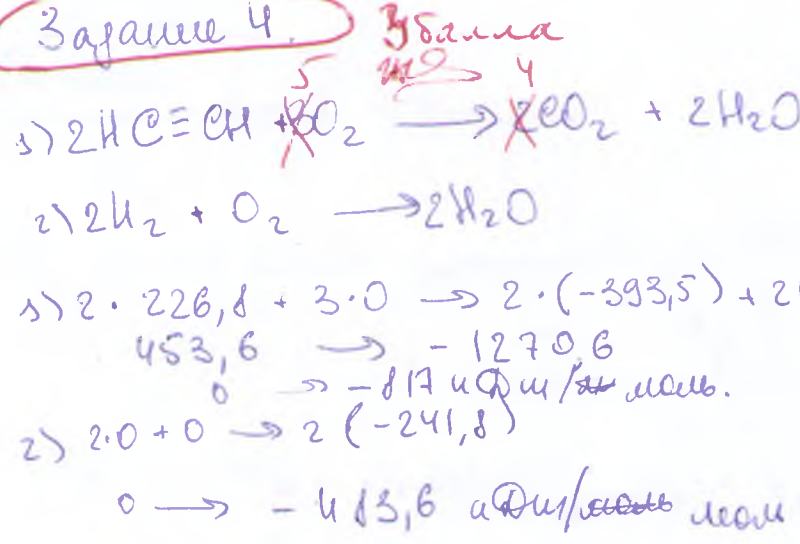 Задание 4. 3 балла
5 4
1) 2HC≡CH + 3O₂ → 2CO₂ + 2H₂O
2) 2H₂ + O₂ → 2H₂O
1) 2 · 226,8 + 3·0 → 2·(-393,5) + 2
453,6 → - 1270,6
0 → - 817 кДж/моль.
2) 2·0 + 0 → 2 (-241,8)
0 → - 483,6 кДж/мол